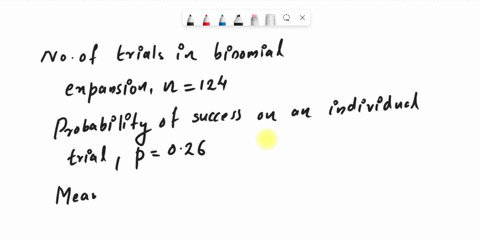 No. of trials in binomial
expansion, n = 124
Probability of success on an individual
trial, p = 0.26
Mea